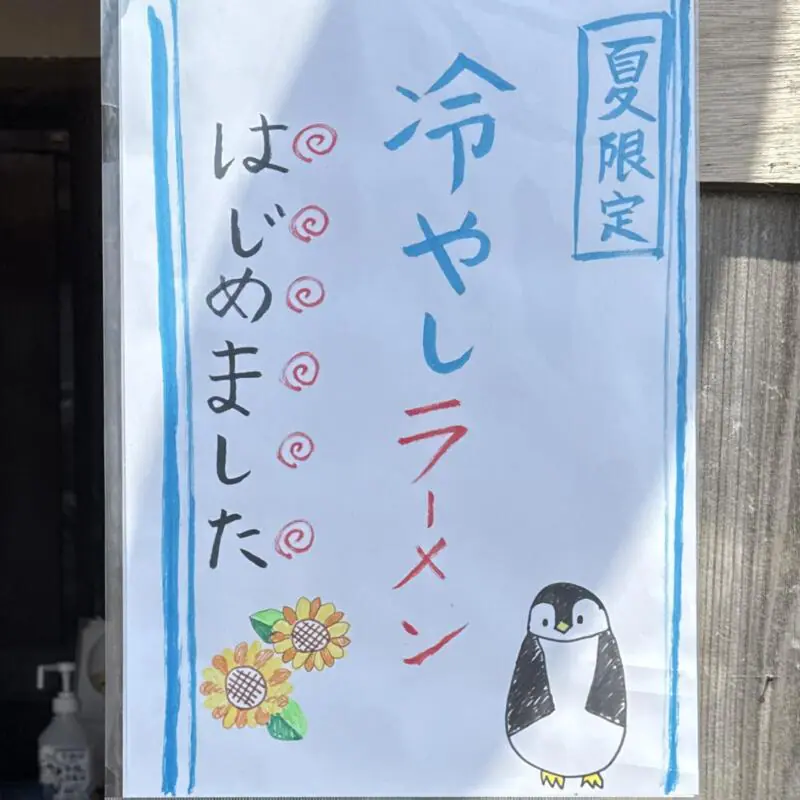 夏限定
冷やしラーメン
はじめました